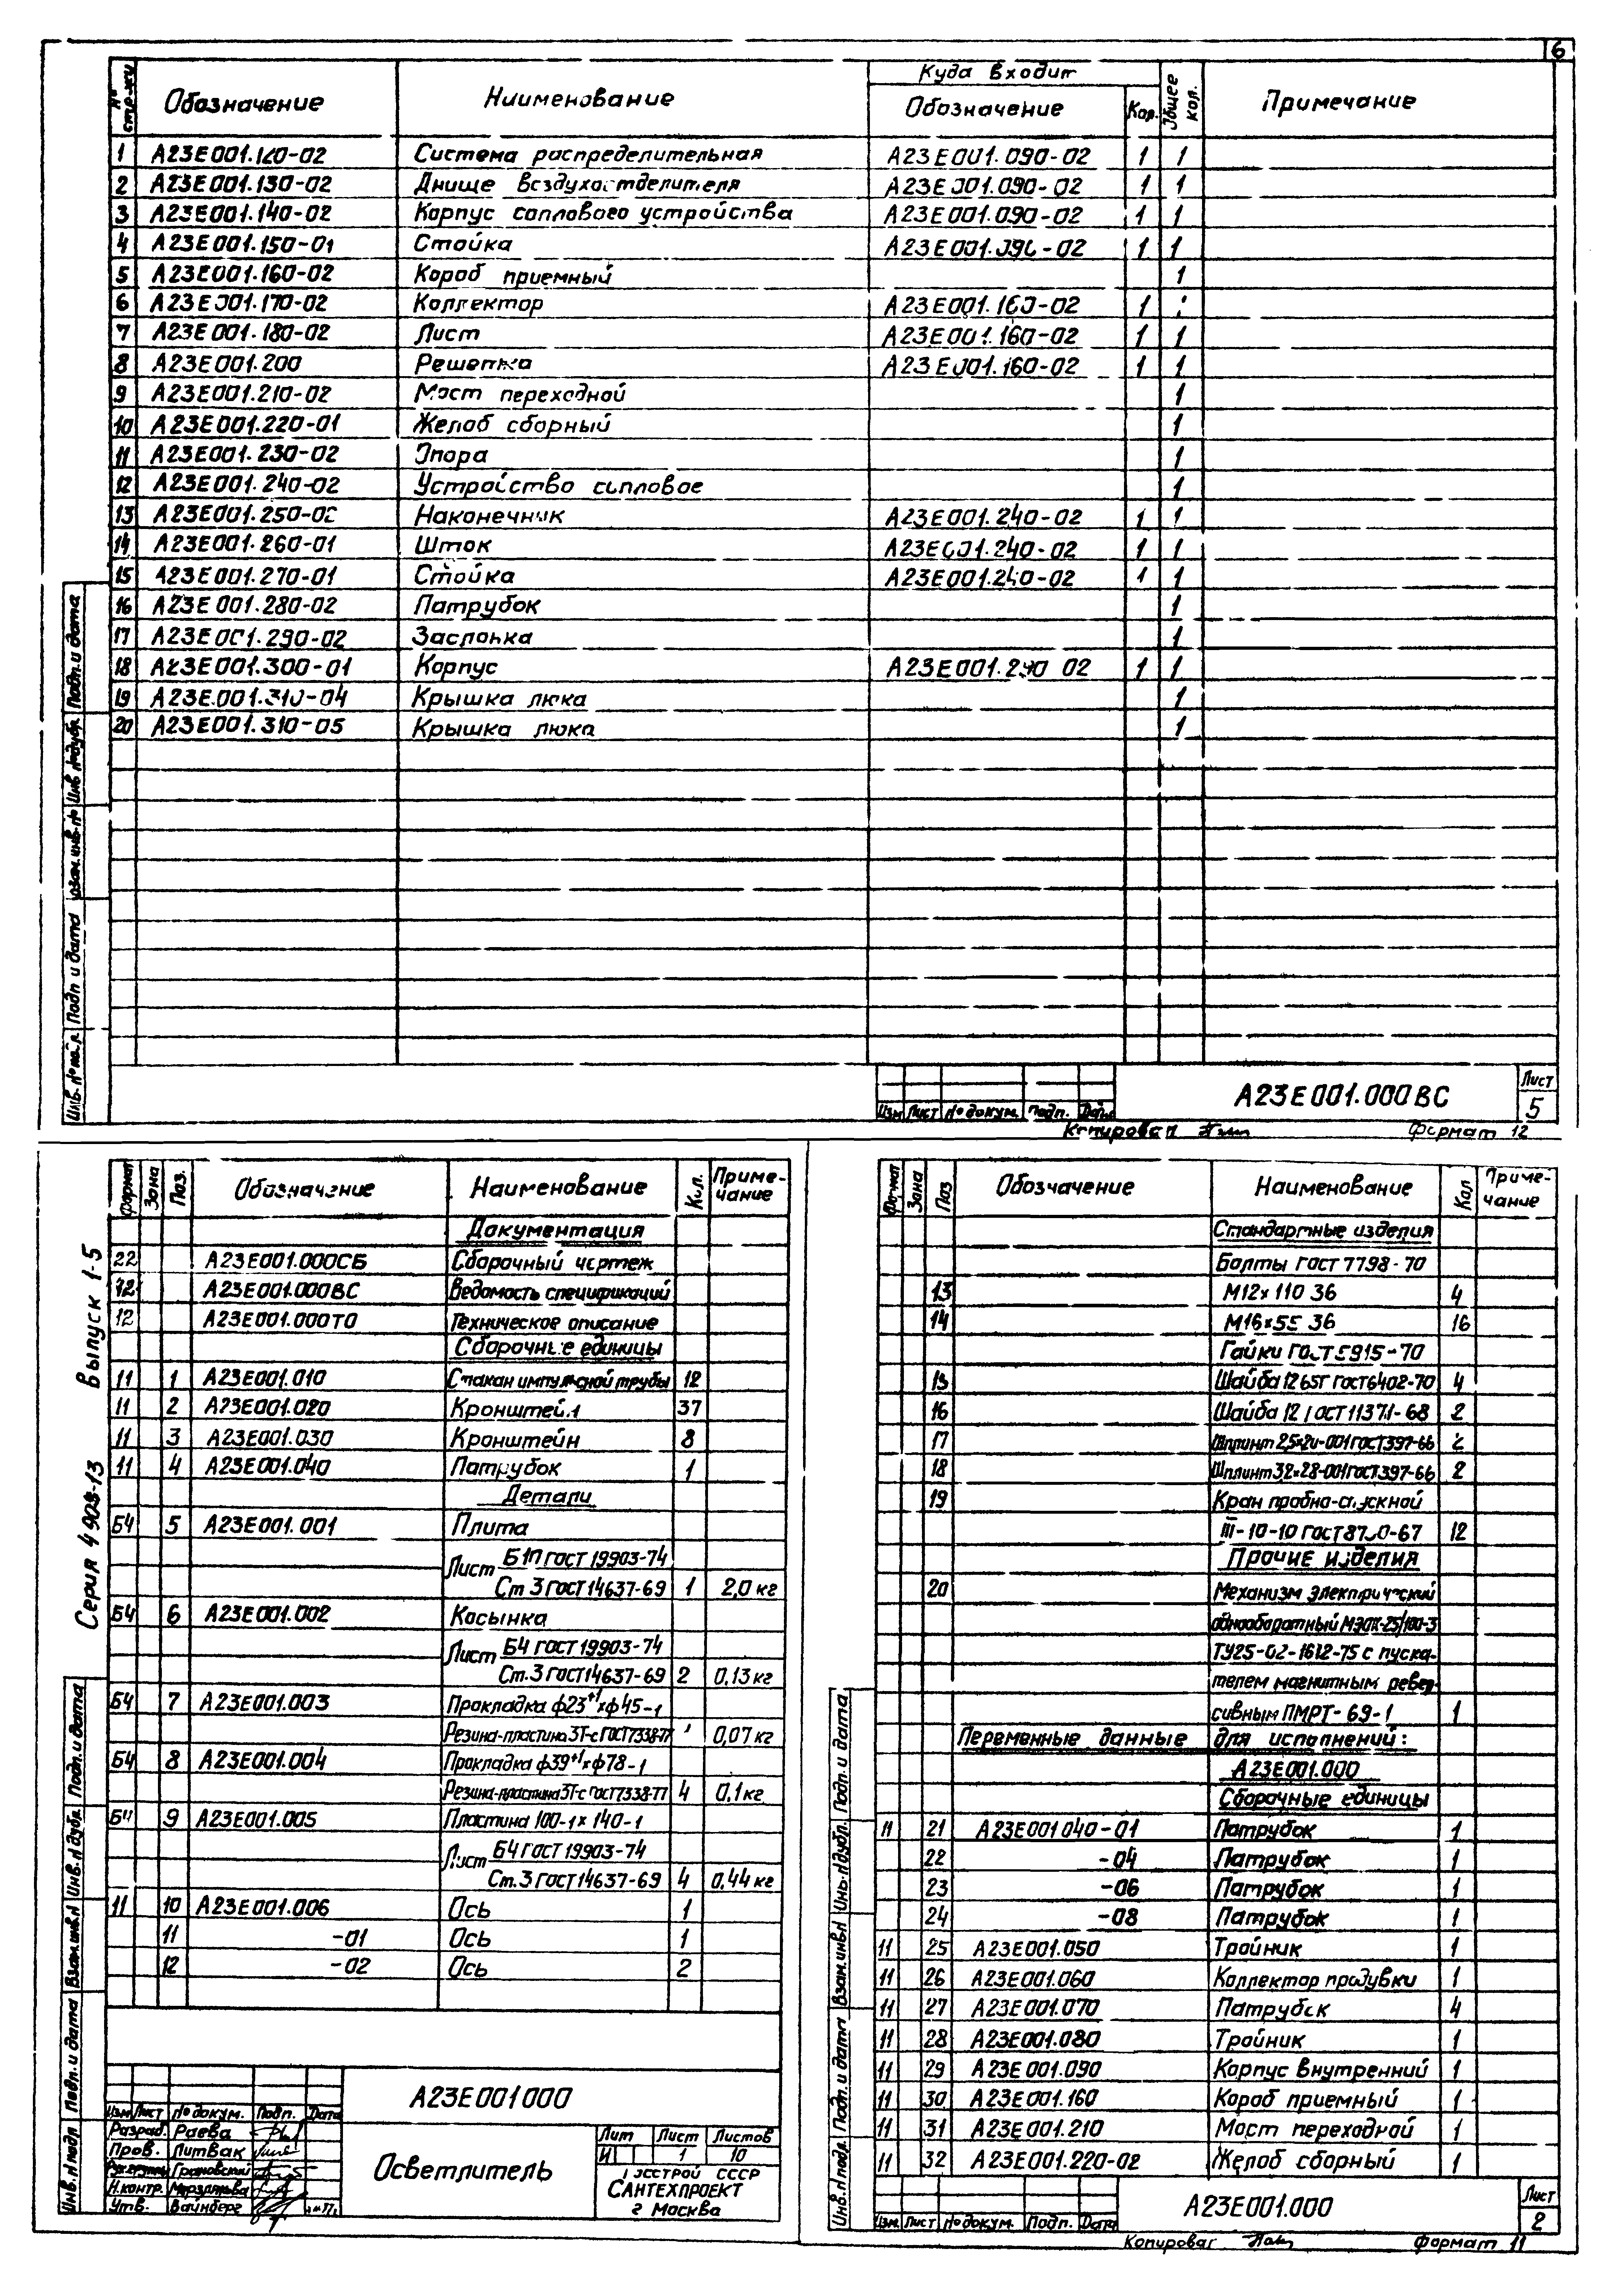 6
№ стр-ки Обозначение Наименование Куда входит Обозначение Кол. Общее кол. Примечание
1 А23Е001.120-02 Система распределительная А23Е001.090-02 1 1
2 А23Е001.130-02 Днище воздухоотделителя А23Е001.090-02 1 1
3 А23Е001.140-02 Корпус соплового устройства А23Е001.090-02 1 1
4 А23Е001.150-01 Стойка А23Е001.090-02 1 1
5 А23Е001.160-02 Короб приемный 1
6 А23Е001.170-02 Коллектор А23Е001.160-02 1
7 А23Е001.180-02 Лист А23Е001.160-02 1 1
8 А23Е001.200 Решетка А23Е001.160-02 1 1
9 А23Е001.210-02 Мост переходной 1
10 А23Е001.220-01 Желоб сборный 1
11 А23Е001.230-02 Опора 1
12 А23Е001.240-02 Устройство сопловое 1
13 А23Е001.250-02 Наконечник А23Е001.240-02 1 1
14 А23Е001.260-01 Шток А23Е001.240-02 1 1
15 А23Е001.270-01 Стойка А23Е001.240-02 1 1
16 А23Е001.280-02 Патрубок 1
17 А23Е001.290-02 Заслонка 1
18 А23Е001.300-01 Корпус А23Е001.290 02 1 1
19 А23Е.001.310-04 Крышка люка 1
20 А23Е001.310-05 Крышка люка 1
Инв. № подл. Подп и дата Взам.инв.№ Инв №дубл. Подп. и дата
Изм Лист № докум. Подп. Дата
А23Е001.000ВС
Лист
5
Копировал
Формат 12
Серия 4 903-13 Выпуск 1-5
Формат Зона Поз. Обозначение Наименование Кол. Примечание
Документация
22 А23Е001.000СБ Сборочный чертеж
12 А23Е001.000ВС Ведомость спецификаций
12 А23Е001.000ТО Техническое описание
Сборочные единицы
11 1 А23Е001.010 Стакан импульсной трубы 12
11 2 А23Е001.020 Кронштейн 37
11 3 А23Е001.030 Кронштейн 8
11 4 А23Е001.040 Патрубок 1
Детали
Б4 5 А23Е001.001 Плита
Лист Б1П ГОСТ 19903-74
Ст 3 ГОСТ 14637-69 1 2,0 кг
Б4 6 А23Е001.002 Косынка
Лист Б4 ГОСТ 19903-74
Ст.3 ГОСТ 14637-69 2 0,13 кг
Б4 7 А23Е001.003 Прокладка ф23⁺¹хф45-1
Резина-пластина 3Т-с ГОСТ7338-77 0,07 кг
Б4 8 А23Е001.004 Прокладка ф39⁺¹хф78-1
Резина-пластина 3Т-с ГОСТ7338-77 4 0,1 кг
Б4 9 А23Е001.005 Пластина 100-1х 140-1
Лист Б4 ГОСТ 19903-74
Ст.3 ГОСТ 14637-69 4 0,44 кг
11 10 А23Е001.006 Ось 1
11 -01 Ось 1
12 -02 Ось 2
Инв.№ подл Подп. и дата Взам.инв.№ Инв.№ дубл. Подп. и дата
Изм Лист № докум. Подп. Дата
Разраб. Раева
Пров. Литвак
Рук.группы Грановский
Н.контр. Мерзлякова
Утв. Вайнберг
А23Е001000
Осветлитель
Лит Лист Листов
И 1 10
Госстрой СССР
Сантехпроект
г Москва
Формат Зона Поз Обозначение Наименование Кол Примечание
Стандартные изделия
Болты ГОСТ 7798-70
13 М12х 110 36 4
14 М16х55 36 16
Гайки ГОСТ 5915-70
15 Шайба 12 65Г ГОСТ6402-70 4
16 Шайба 12 ГОСТ 11371-68 2
17 Шплинт 2,5х20-001ГОСТ397-66 2
18 Шплинт3,2х28-001ГОСТ397-66 2
19 Кран пробно-спускной
III-10-10 ГОСТ 87 0-67 12
Прочие изделия
20 Механизм электрический
однооборотный МЭОК-25/100-3
ТУ25-02-1612-75 с пуска-
телем магнитным ревер-
сивным ПМРТ-69-1 1
Переменные данные для исполнений:
А23Е001.000
Сборочные единицы
11 21 А23Е001 040-01 Патрубок 1
22 -04 Патрубок 1
23 -06 Патрубок 1
24 -08 Патрубок 1
11 25 А23Е001.050 Тройник 1
11 26 А23Е001.060 Коллектор продувки 1
11 27 А23Е001.070 Патрубок 4
11 28 А23Е001.080 Тройник 1
11 29 А23Е 001.090 Корпус внутренний 1
11 30 А23Е001.160 Короб приемный 1
11 31 А23Е001.210 Мост переходной 1
11 32 А23Е001.220-02 Желоб сборный 1
Инв.№ подл. Подп. и дата Взам.инв№ Инв.№дубл. Подп. и дата
Изм. Лист № докум. Подп. Дата
А23Е001.000
Лист
2
Копировал
Формат 11